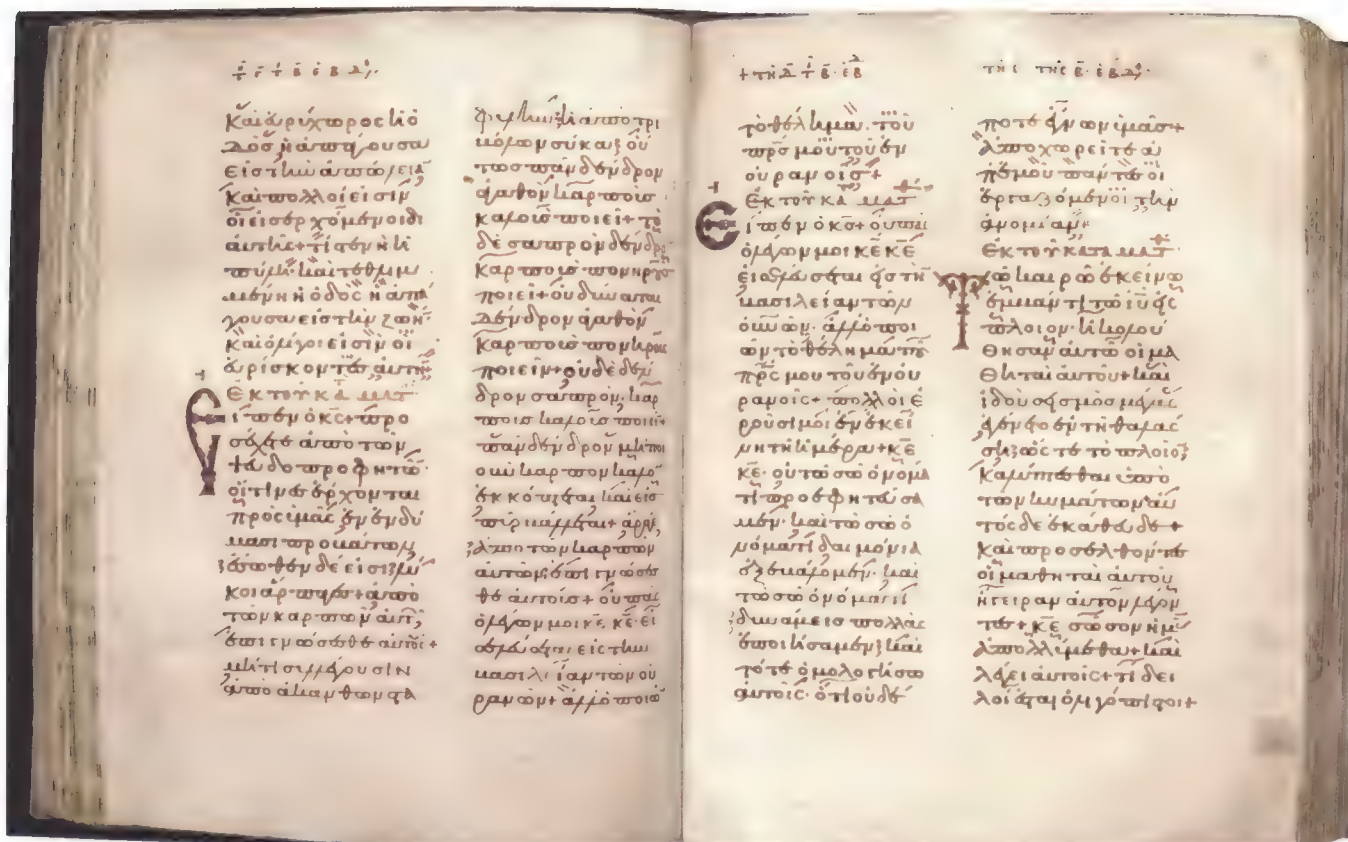 καὶ εὐρύχωρος ἡ ὁ
δὸς ἡ ἀπάγουσα
εἰς τὴν ἀπώλειᾱ
καὶ πολλοί εἰσιν
οἱ εἰσερχόμενοι δι
αὐτῆς+ τί στενὴ ἡ
πύλη· καὶ τεθλιμ
μένη ἡ ὁδὸς ἡ ἀπά
γουσα εἰς τὴν ζωήν·
καὶ ὀλίγοι εἰσὶν οἱ
εὑρίσκοντες αὐτήν+
ἐκ τοῦ κατὰ ματ
Εἶπεν ὁ κς+ προ
σέχετε ἀπὸ τῶν
ψευδοπροφητῶ
οἵτινες ἔρχονται
πρὸς ἱμᾶς ἐν ἐνδύ
μασι προβάτων
ἔσωθεν δέ εἰσι λύ
κοι ἅρπαγες+ ἀπὸ
τῶν καρπῶν αὐτ
ἐπιγνώσεσθε αὐτούς+
μήτι συλλέγουσιν
ἀπὸ ἀκανθῶν στα
φυλὴν· ἢ ἀπὸ τρι
βόλων σύκα· οὕ
τως πᾶν δένδρον
ἀγαθὸν καρποὺς
καλοὺς ποιεῖ+ τὸ
δὲ σαπρὸν δένδρο
καρποὺς πονηροὺς
ποιεῖ+ οὐ δύναται
δένδρον ἀγαθὸν
καρποὺς πονηροὺς
ποιεῖν+ οὐδὲ δέν
δρον σαπρὸν· καρ
ποὺς καλοὺς ποιεῖν+
πᾶν δένδρον μὴ ποι
οῦν καρπὸν καλὸ
ἐκκόπτεται καὶ εἰς
πῦρ βάλλεται+ ἄρα γε
ἀπὸ τῶν καρπῶν
αὐτῶν ἐπιγνώσεσ
θε αὐτούς+ οὐ πᾶς
ὁ λέγων μοι κε κε· εἰ
σελεύσεται εἰς τὴν
βασιλείαν τῶν οὐ
ρανῶν+ ἀλλ ὁ ποιῶ
τὸ θέλημα· τοῦ
πρς μου τοῦ ἐν
οὐρανοῖς+
ἐκ τοῦ κα ματ
Εἶπεν ὁ κς+ οὐ πᾶς
ὁ λέγων μοι κε κε
εἰσελεύσεται εἰς τὴ
βασιλείαν τῶν
οὐνων· ἀλλ ὁ ποι
ῶν τὸ θέλημα τοῦ
πρς μου τοῦ ἐν οὐ
ρανοῖς+ πολλοὶ ἐ
ροῦσί μοι ἐν ἐκεί
νῃ τῇ ἡμέρᾳ+ κε
κε· οὐ τῷ σῷ ὀνόμα
τι προεφητεύσα
μεν· καὶ τῷ σῷ ὀ
νόματι δαιμόνια
ἐξεβάλομεν· καὶ
τῷ σῷ ὀνόματι
δυνάμεις πολλὰς
ἐποιήσαμεν· καὶ
τότε ὁμολογήσω
αὐτοῖς· ὅτι οὐδέ
ποτε ἔγνων ἱμᾶς+
ἀποχωρεῖτε ἀ
π ἐμοῦ πάντες οἱ
ἐργαζόμενοι τὴν
ἀνομίαν+
ἐκ τοῦ κατα ματ
Τῷ καιρῷ ἐκείνῳ
ἐμβάντι τῷ ιυ εἰς
πλοῖον· ἠκολού
θησαν αὐτῷ οἱ μα
θηταὶ αὐτοῦ+ καὶ
ἰδοὺ σεισμὸς μέγας
ἐγένετο ἐν τῇ θαλάσ
σῃ ὥστε τὸ πλοῖον
καλύπτεσθαι ὑπὸ
τῶν κυμάτων αὐ
τὸς δὲ ἐκάθευδε+
καὶ προσελθόντες
οἱ μαθηταὶ αὐτοῦ
ἤγειραν αὐτὸν λέγον
τες+ κε σῶσον ἡμᾶς
ἀπολλύμεθα+ καὶ
λέγει αὐτοῖς+ τί δει
λοί ἐσται ὀλιγόπιστοι+